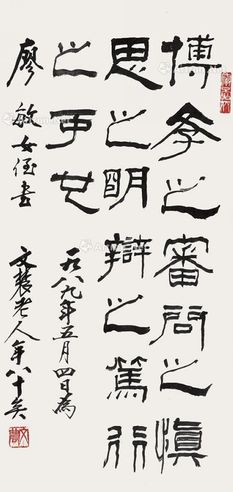 博學之審問之慎
思之明辯之篤行
之可也
一九八九年五月四日為
廖敏女侄書
文老人年八十矣